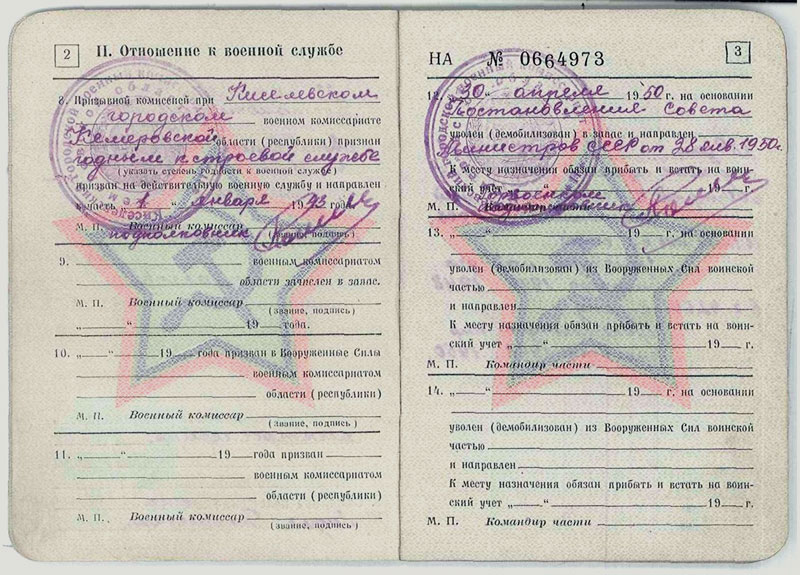 2
II. Отношение к военной службе
8. Призывной комиссией при Киселевском
городском военном комиссариате
Кемеровской области (республики) признан
годным к строевой службе
(указать степень годности к военной службе)
призван на действительную военную службу и направлен
в часть „ 1 “ января 1943 года.
М. П. Военный комиссар
подполковник (звание, подпись)
9. военным комиссариатом
области зачислен в запас.
М. П. Военный комиссар
(звание, подпись)
„ “ 19 года.
10. „ “ 19 года призван в Вооруженные Силы
военным комиссариатом
области (республики)
М. П. Военный комиссар
(звание, подпись)
11. „ “ 19 года призван
военным комиссариатом
области (республики)
М. П. Военный комиссар
(звание, подпись)
НА № 0664973
3
12. „30“ апреля 1950 г. на основании
Постановления Совета
уволен (демобилизован) в запас и направлен
Министров СССР от 28 янв. 1950г.
К месту назначения обязан прибыть и встать на воин-
ский учет „ “ 19 г.
М. П.
13. „ “ 19 г. на основании
уволен (демобилизован) из Вооруженных Сил воинской
частью
и направлен
К месту назначения обязан прибыть и встать на воин-
ский учет „ “ 19 г.
М. П. Командир части
14. „ “ 19 г. на основании
уволен (демобилизован) из Вооруженных Сил воинской
частью
и направлен
К месту назначения обязан прибыть и встать на воин-
ский учет „ “ 19 г.
М. П. Командир части